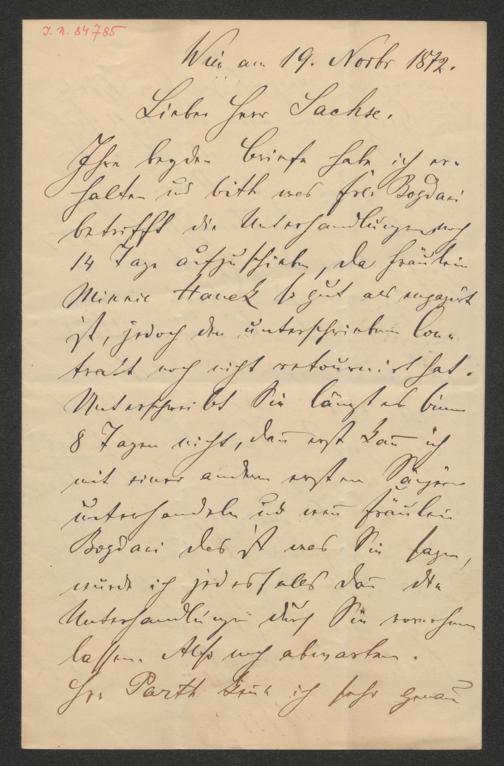 J. N. 84785
Wien am 19. Novbr 1872.
Lieber Herr Sachse.
Ihre beyden Briefe habe ich er-
halten und bitte was Frl. Bogdani
betrifft die Unterhandlungen noch
14 Tage aufzuschieben, da Fräulein
Minnie Hauck so gut als engagirt
ist, jedoch den unterschriebenen Con-
trakt noch nicht retournirt hat.
Unterschreibt Sie längstens binnen
8 Tagen nicht, dann erst kann ich
mit einer andern ersten Sängerin
unterhandeln und wenn Fräulein
Bogdani das ist was Sie sagen,
würde ich jedesfalls dann die
Unterhandlungen durch Sie vornehmen
lassen. Also noch abwarten.
Hr. Parth kenne ich sehr genau